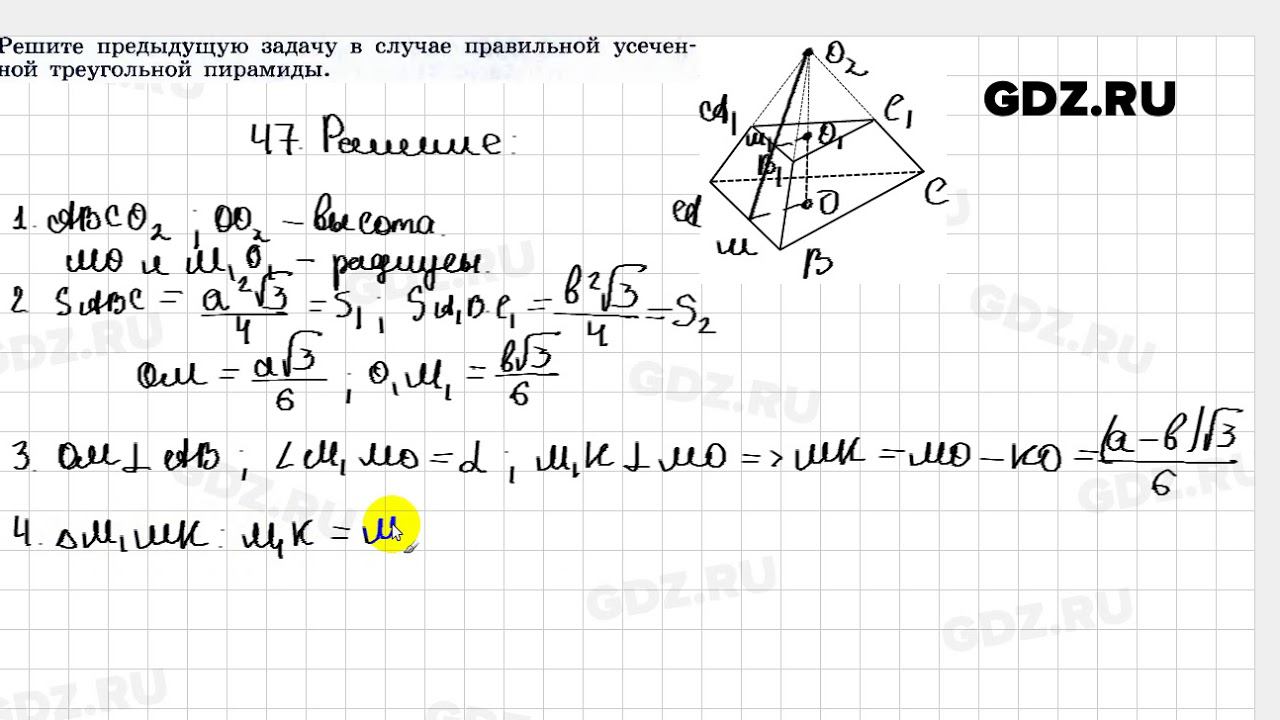 Решите предыдущую задачу в случае правильной усечен-
ной треугольной пирамиды.
GDZ.RU
47. Решение:
O₂
A₁
C₁
M₁
O₁
B₁
A
O
C
M
B
1. ABCO₂ ; OO₂ – высота.
MO и M₁O₁ – радиусы.
2 SABC = a²√3/4 = S₁ ; SA₁B₁C₁ = b²√3/4 = S₂
OM = a√3/6 ; O₁M₁ = b√3/6
3. OM ⊥ AB ; ∠M₁MO = α ; M₁K ⊥ MO => MK = MO – KO = (a – b)√3/6
4. △M₁MK : M₁K = M
GDZ.RU
GDZ.RU
GDZ.RU
GDZ.RU
GDZ.RU
GDZ.RU
GDZ.RU
GDZ.RU
GDZ.RU